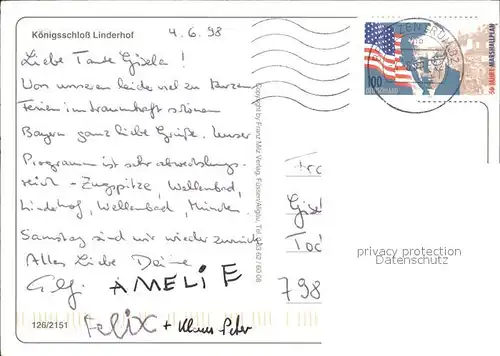 Königsschloß Linderhof
4.6.98
Liebe Tante Gisela!
Von unseren leider viel zu kurzen
Ferien im traumhaft schönen
Bayern ganz liebe Grüße. Unser
Programm ist sehr abwechslungs-
reich - Zugspitze, Wellenbad,
Linderhof, Wellenbad, München.
Samstag sind wir wieder zurück
Alles Liebe Deine
AMELIE
Felix + Klaus Peter
126/2151
Copyright by Franz Milz Verlag, Füssen/Allgäu, Tel. 0 83 62 / 60 08
100
DEUTSCHLAND
50 JAHRE MARSHALLPLAN
Gisel
Tod
798
privacy protection
Datenschutz